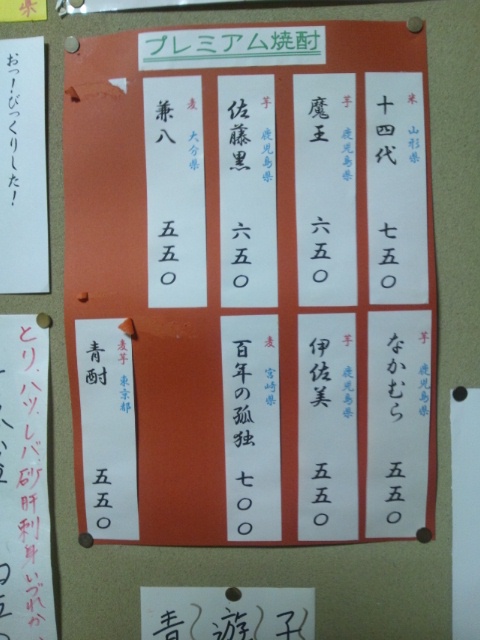 プレミアム焼酎
米 山形県
十四代 七五〇
芋 鹿児島県
魔王 六五〇
芋 鹿児島県
佐藤黒 六五〇
麦 大分県
兼八 五五〇
芋 鹿児島県
なかむら 五五〇
芋 鹿児島県
伊佐美 五五〇
麦 宮崎県
百年の孤独 七〇〇
麦芋 東京都
青酎 五五〇
おっ!びっくりした!
とり、ハツ、レバ、砂肝刺身いづれか
青 遊 子